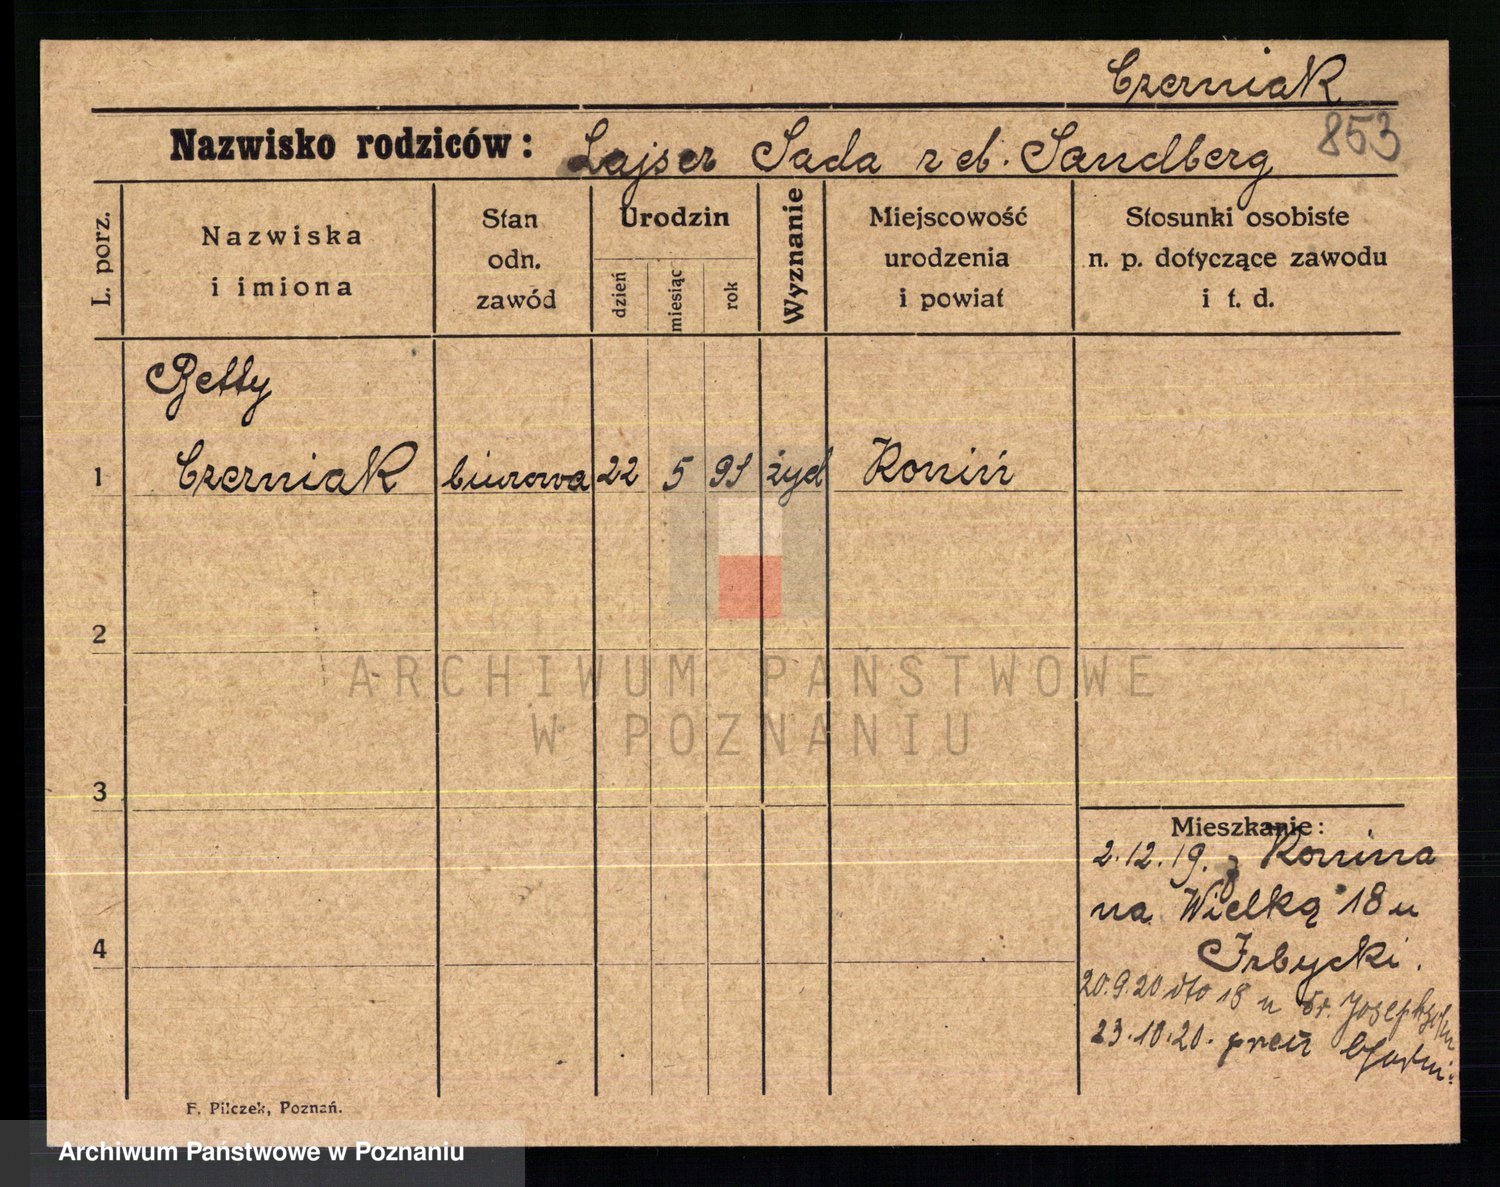 Czerniak
853
Nazwisko rodziców: Lajser Sada z d. Sandberg
L. porz.
Nazwiska
i imiona
Stan
odn.
zawód
Urodzin
dzień
miesiąc
rok
Wyznanie
Miejscowość
urodzenia
i powiat
Stosunki osobiste
n. p. dotyczące zawodu
i t. d.
Betty
1 Czerniak biurowa 22 5 91 żyd Koniń
2
ARCHIWUM PAŃSTWOWE
W POZNANIU
3
Mieszkanie:
2.12.19. z Konina
na Wielką 18 u
4
20.9.20 dto 18 u Dr.
23.10.20.
F. Pilczek, Poznań.
Archiwum Państwowe w Poznaniu